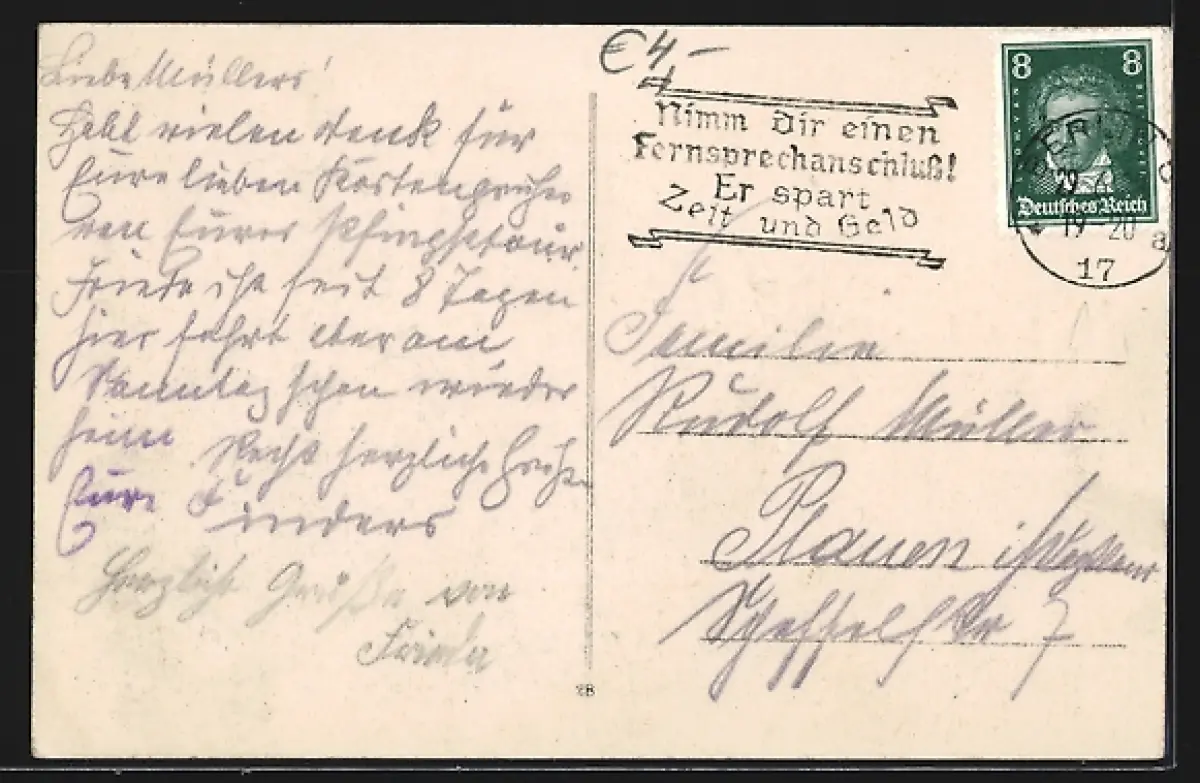 Liebe Müllers!
Habt vielen Dank für
Eure lieben Kartengrüße
von Eurer Pfingsttour.
Frieda ist seit 8 Tagen
hier fährt aber am
Sonntag schon wieder
heim. Recht herzliche Grüße
Eure
Herzlich Grüße von
Frieda
€4,-
Nimm Dir einen
Fernsprechanschluß!
Er spart
Zeit und Geld
8 8
Deutsches Reich
BERLIN
17
Familie
Rudolf Müller
Plauen i/Vogtland
Str 7